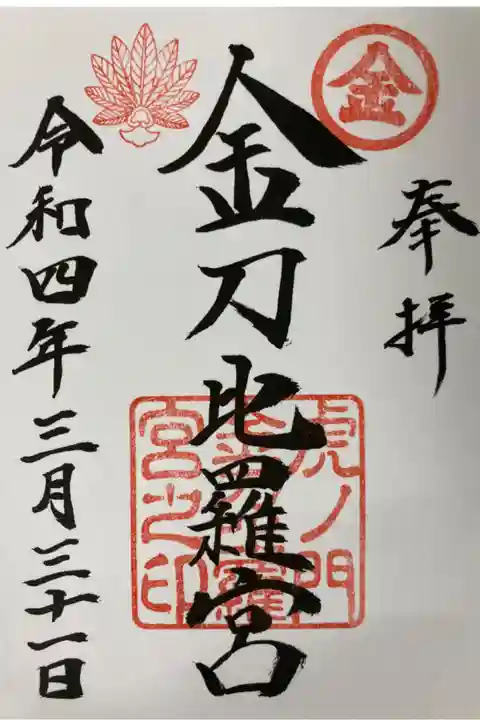 金
奉拝
金刀比羅宮
虎ノ門
金刀比羅
宮之印
令和四年三月三十一日